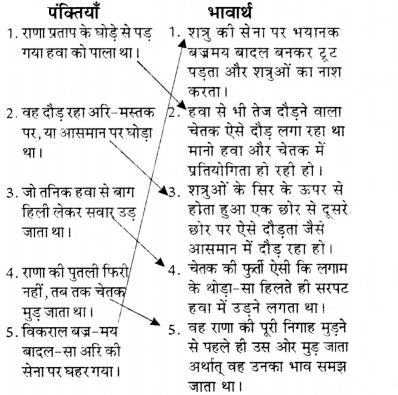 पंक्तियाँ
1. राणा प्रताप के घोड़े से पड़
गया हवा को पाला था।
2. वह दौड़ रहा अरि-मस्तक
पर, या आसमान पर घोड़ा
था।
3. जो तनिक हवा से बाग
हिली लेकर सवार उड़
जाता था।
4. राणा की पुतली फिरी
नहीं, तब तक चेतक
मुड़ जाता था।
5. विकराल बज्र-मय
बादल-सा अरि की
सेना पर घहर गया।
भावार्थ
1. शत्रु की सेना पर भयानक
बज्रमय बादल बनकर टूट
पड़ता और शत्रुओं का नाश
करता।
2. हवा से भी तेज दौड़ने वाला
चेतक ऐसे दौड़ लगा रहा था
मानो हवा और चेतक में
प्रतियोगिता हो रही हो।
3. शत्रुओं के सिर के ऊपर से
होता हुआ एक छोर से दूसरे
छोर पर ऐसे दौड़ता जैसे
आसमान में दौड़ रहा हो।
4. चेतक की फुर्ती ऐसी कि लगाम
के थोड़ा-सा हिलते ही सरपट
हवा में उड़ने लगता था।
5. वह राणा की पूरी निगाह मुड़ने
से पहले ही उस ओर मुड़ जाता
अर्थात् वह उनका भाव समझ
जाता था।